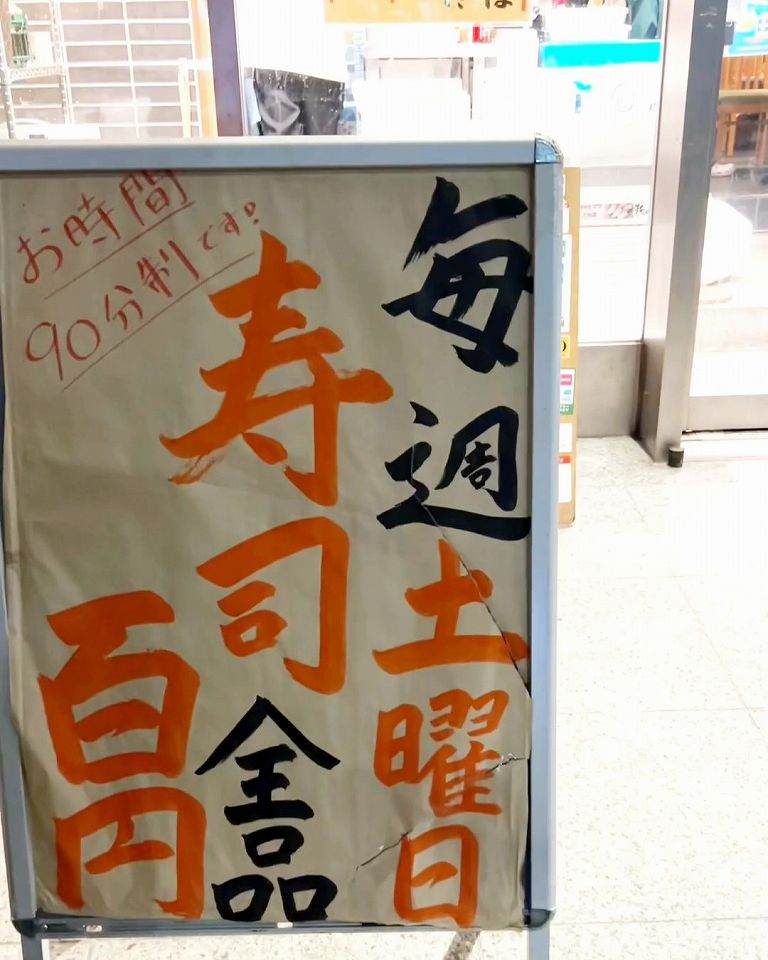 毎週土曜日
寿司全品
百円
お時間
90分制です。